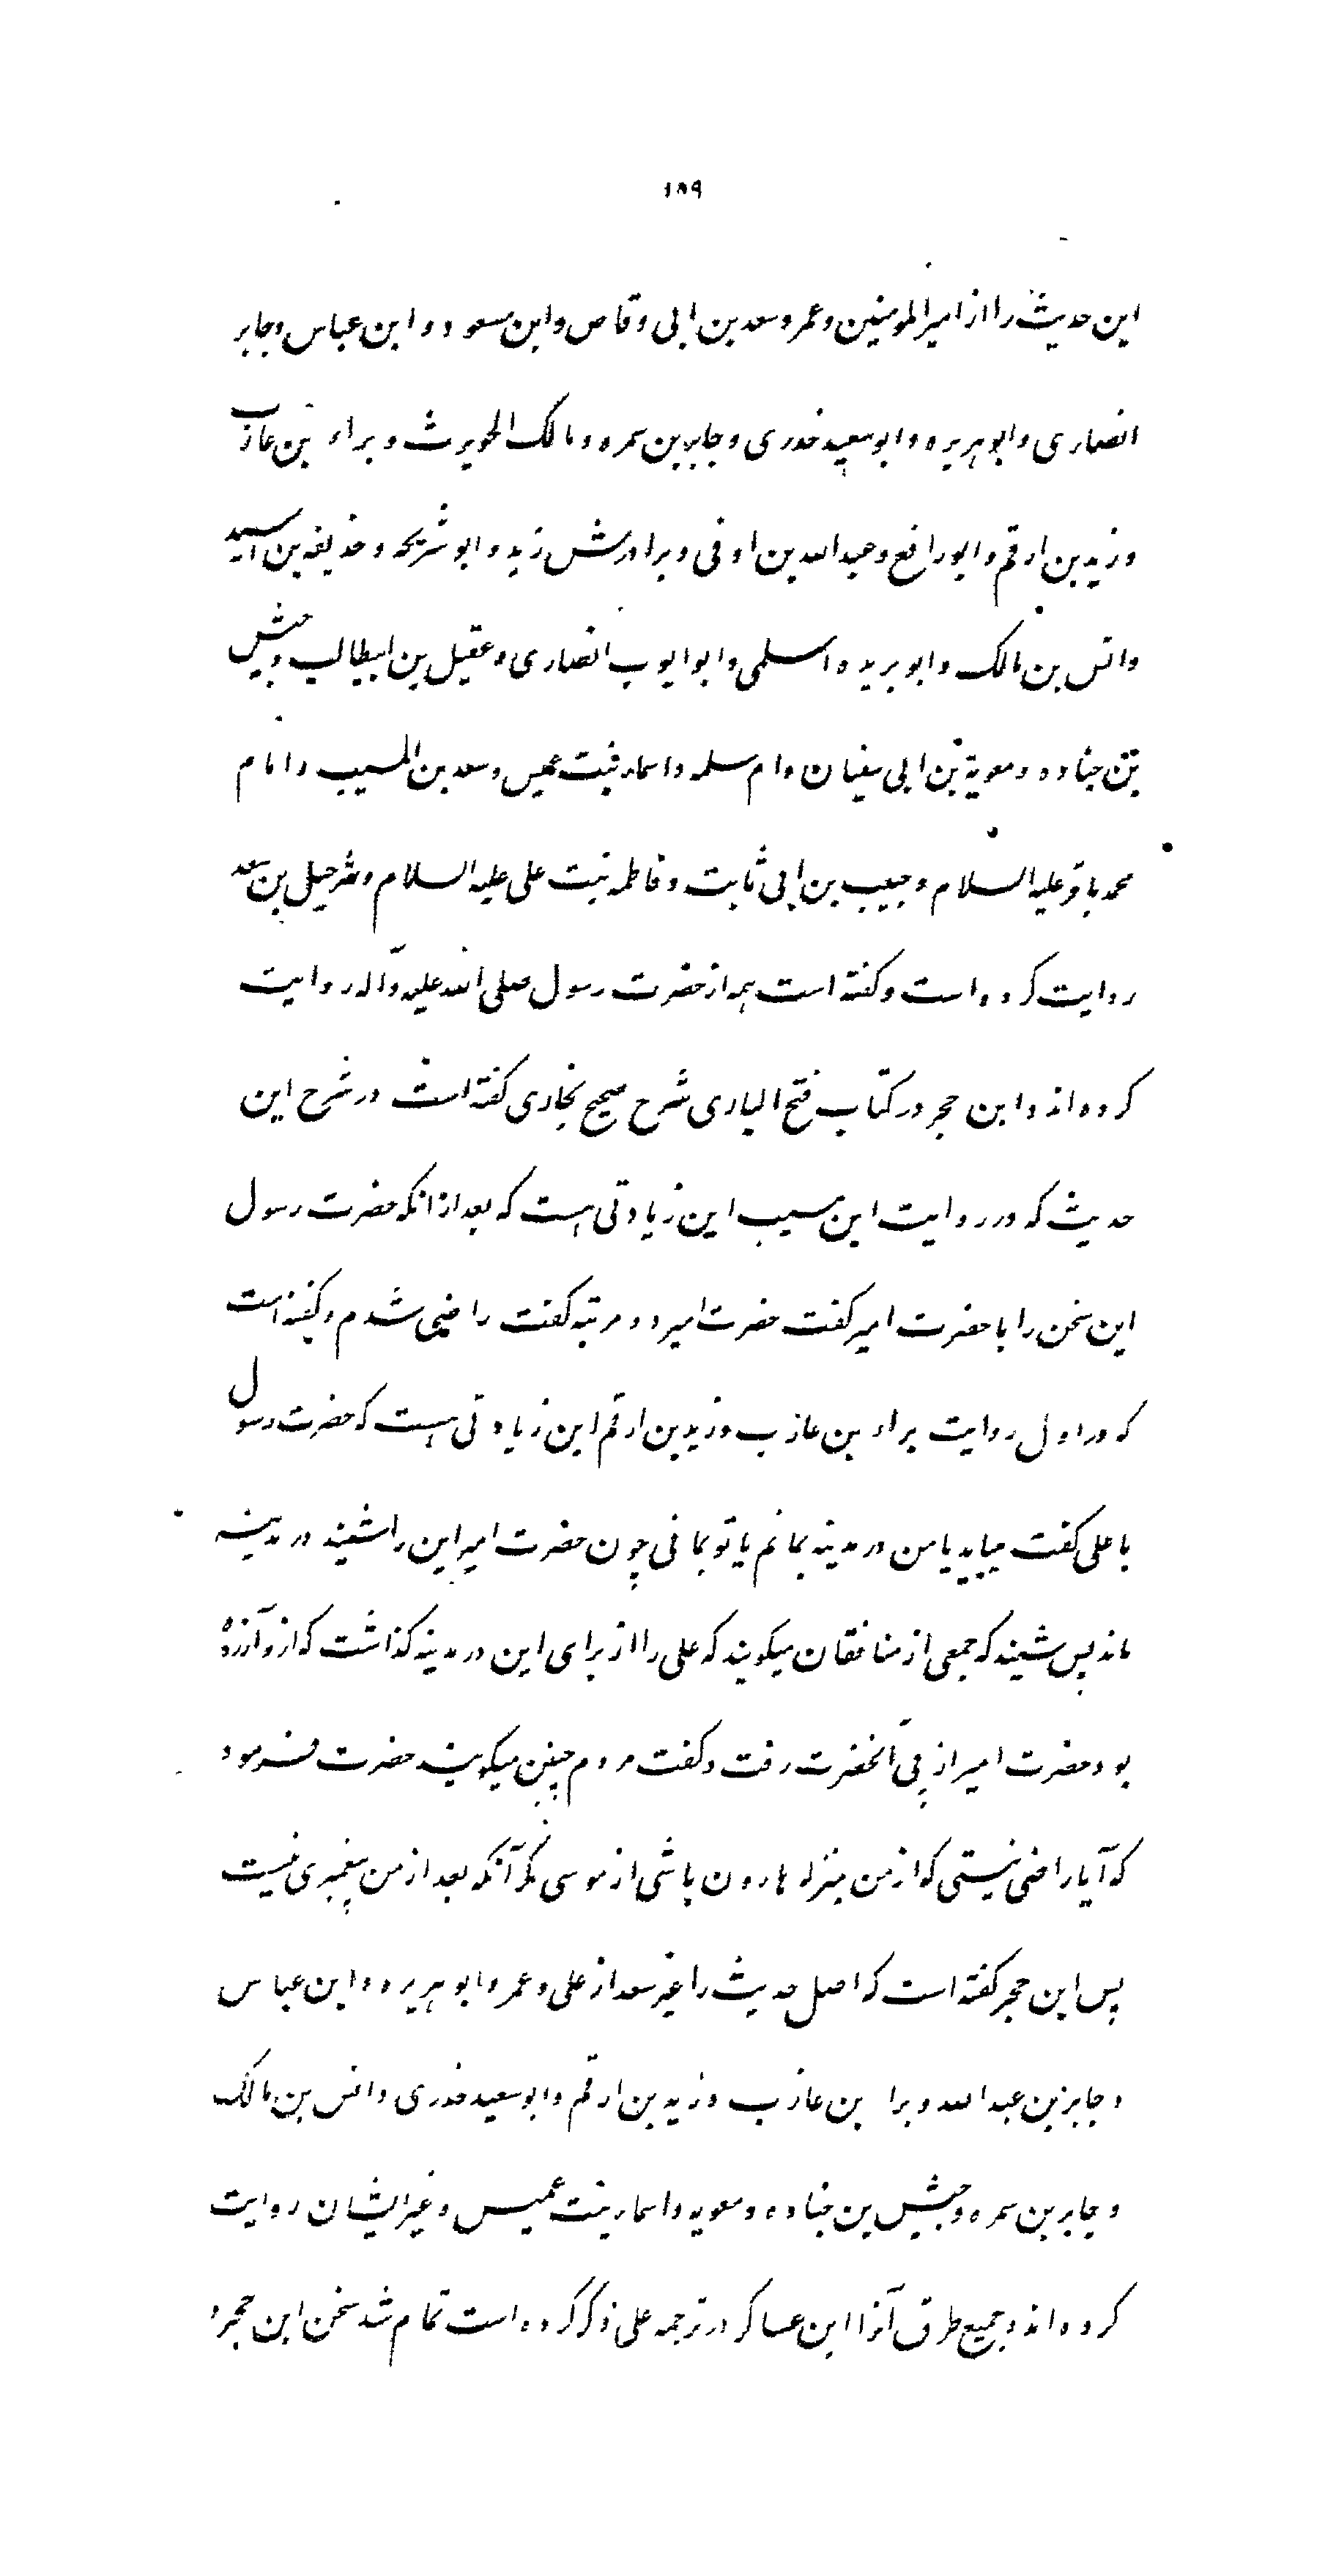 ۱۸۹
این حدیث را از امیرالمومنین و عمر و سعد بن ابی وقاص و ابن مسعود و ابن عباس و جابر
انصاری و ابوهریره و ابوسعید خدری و جابر بن سمره و مالک الحویرث و براء بن عازب
و زید بن ارقم و ابورافع و عبدالله بن اوفی و برادرش زید و ابو شریحه و حذیفه بن اسید
و انس بن مالک و ابو بریده اسلمی و ابو ایوب انصاری و عقیل بن ابیطالب و حبشی
بن جناده و معویة بن ابی سفیان و ام سلمه و اسماء بنت عمیس و سعد بن المسیب و امام
محمد باقر علیه السلام و حبیب بن ابی ثابت و فاطمه بنت علی علیه السلام و شرحبیل بن سعد
روایت کرده است و گفته است همه از حضرت رسول صلی الله علیه وآله روایت
کرده اند و ابن حجر در کتاب فتح الباری شرح صحیح بخاری گفته است در شرح این
حدیث که در روایت ابن مسیب این زیادتی هست که بعد از انکه حضرت رسول
این سخن را با حضرت امیر گفت حضرت امیر دو مرتبه گفت راضی شدم و گفته است
که در اول روایت براء بن عازب و زید بن ارقم این زیادتی هست که حضرت رسول
با علی گفت میباید یا من در مدینه بمانم یا تو بمانی چون حضرت امیر این را شنید در مدینه
ماند پس شنید که جمعی از منافقان میگویند که علی را از برای این در مدینه گذاشت که از و آزرده
بود حضرت امیر از پی آنحضرت رفت و گفت مردم چنین میگویند حضرت فرمود
که آیا راضی نیستی که از من بمنزله هارون باشی از موسی مگر آنکه بعد از من پیغمبری نیست
پس ابن حجر گفته است که اصل حدیث را غیر سعد از علی و عمر و ابو هریره و ابن عباس
و جابر بن عبدالله و براء بن عازب و زید بن ارقم و ابو سعید خدری و انس بن مالک
و جابر بن سمره و حبشی بن جناده و معویه و اسماء بنت عمیس و غیر ایشان روایت
کرده اند و جمیع طرق آنرا ابن عساکر در ترجمه علی ذکر کرده است تمام شد سخن ابن حجر و